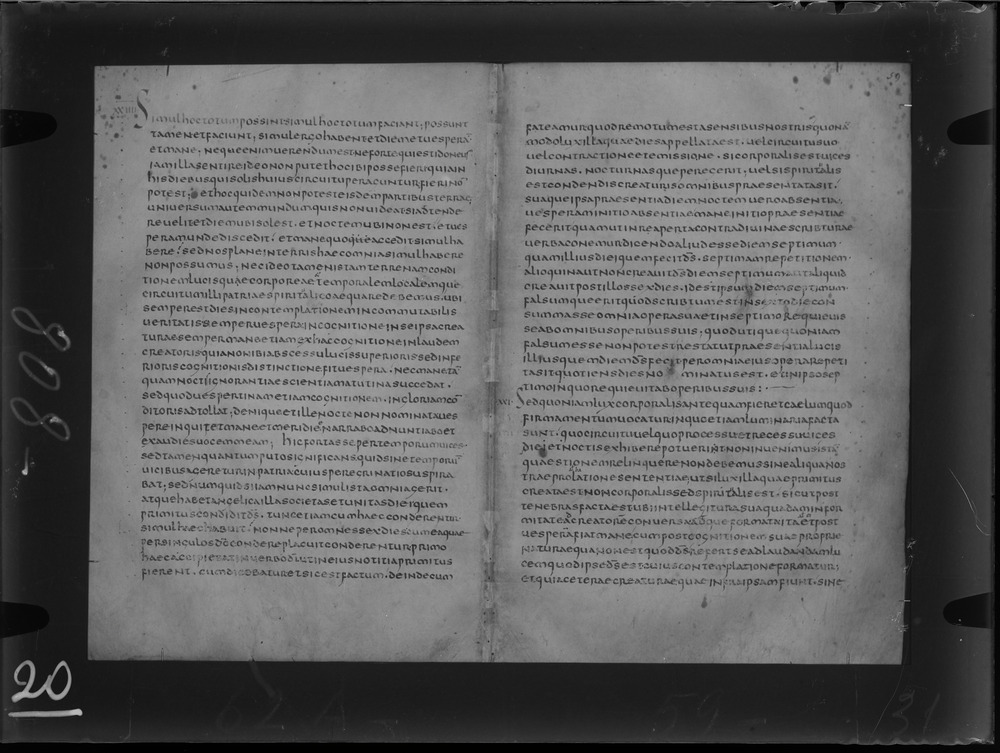 XXVIIII
Simulhoctotumpossintsimulhoctotumfaciant; possunt
tamenetfaciunt; simulergohabentetdiemetuesperā
etmane; nequeenimuerendumestneforte quiestidoneus
iamillasentireideononputethocibiposse fieriquiain
hisdiebusquisolishuiuscircuituperagunturfierinō
potest; ethocquidemnonpotesteisdempartibusterrae
uniuersumautemmundumquisnonuideatsiadtende
reuelitetdiemubisolest. etnoctemubinonest. etues
peramundediscedit. etmanequoqueaccedit simulha
bere; sednosplaneinterrishaecomniasimulhabere
nonpossumus; necideotamenistamterrenamcondi
tionemlucisquaecorporeaetemporalemlocalemque
circuitumillipatriaespiritalicoaequaredebemus. ubi
semperestdiesincontemplationeincommutabilis
ueritatissemperuesperaincognitioneinseipsacrea
turaesempermaneetiamexhaccognitioneinlaudem
creatorisquianonibiabscessulucissuperiorissedinfe
rioriscognitionisdistinctionefituespera. necmanetā
quamnoctiignorantiaescientiamatutinasuccedat.
sedquoduespertinametiamcognitionem. ingloriamcō
ditorisadtollat; deniqueetillenoctenonnominataues
pereinquitetmaneetmeridienarraboadnuntiaboet
exaudiesuocemmeam; hicfortassepertemporumuices.
sedtamenquantumputosignificansquidsinetemporum
uicibusageretur inpatriacuiusperegrinatiosuspira
bat; sednumquidsiiamnuncsimulistaomniagerit.
atquehabetangelicaillasocietasetunitasdieiquem
primitusconditds. tuncetiamcumhaecconderentur
simulhaechabuit; nonneperomnessexdiescumeaquae
persingulosdōconderePlacuitconderenturprimo
haecaccipiebatinuerbodīutineiusnotitiaprimitus
fierent. cumdiceбaturetsicestfactum. deindecum
59
fateamurquodremotumestasensibusnostrisquonā
modoluxillaquaediesappellataest. uelcircuitusuo
uelcontractioneetemissione. sicorporalisestuices
diurnas. nocturnasqueperegerit. uelsispiritalis
estcondendiscreaturisomnibuspraesentatasit.
suaqueipsapraesentiadiemnoctemueroabsentia.
uesperaminitioabsentiaemaneinitiopraesentiae
feceritquamutinreapertacontradiuinaescripturae
uerbaconemurdicendoaliudessediemseptimum.
quamilliusdieiquemfecitds̄. septimamrepetitionem.
alioquinautnoncreauitds̄diemseptimumautaliquid
creauitpostillossexdies. idestipsumdiemseptimum
falsumqueeritquodscribtumestinsextodiecon
summasseomniaoperasuaetinseptimorequieuis
seabomnibusoperibussuis; quodutiquequoniam
falsumessenonpotestrestatutpraesentialucis
illiusquemdiemds̄fecitperomniaeiusoperarepeti
tasitquotiensdiesnominatusest. etinipsosep
timoinquorequieuitaboperibussuis;
XXI Sedquoniamluxcorporalisantequamfieretcaelumquod
firmamentumuocaturinquoetiamluminariafacta
sunt. quocircuituuelquoprocessuetrecessuuices
dieietnoctisexhiberepotueritnoninuenimusistā
quaestionemrelinquerenondebemussinealiquanos
traeprolationesententiaeutsiluxillaquaeprimitus
creataestnoncorporalissedspiritalisest. sicutpost
tenebrasfactaestubiintellegitur asuaquadaminfor
mitateadcreatoremconuersaatqueformataitaetpost
uesperāfiatmanecumpostcognitionemsuaepropriae
naturaequanonestquodds̄refertseadlaudandamlu
cemquodipsedsestcuiuscontemplationeformatur;
etquiaceteraecreaturaequaeinfraipsamfiunt. sine
808-
20